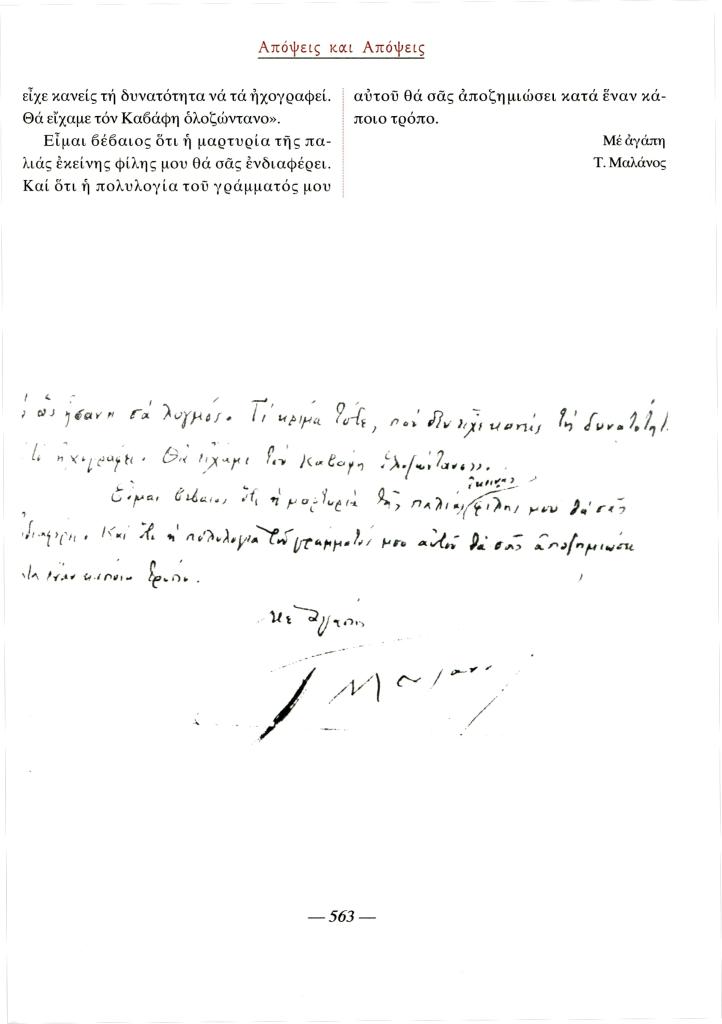 Απόψεις και Απόψεις
εἶχε κανείς τή δυνατότητα νά τά ἠχογραφεί.
Θά εἴχαμε τόν Καβάφη ὁλοζώντανο».
Εἶμαι βέβαιος ὅτι ἡ μαρτυρία τῆς πα-
λιᾶς ἐκείνης φίλης μου θά σᾶς ἐνδιαφέρει.
Καί ὅτι ἡ πολυλογία τοῦ γράμματός μου
αὐτοῦ θά σᾶς ἀποζημιώσει κατά ἕναν κά-
ποιο τρόπο.
Μέ ἀγάπη
Τ. Μαλάνος
ἤσαν σά λυγμός. Τί κρίμα τότε, πού δέν εἶχε κανείς τή δυνατότητ
ἠχογραφεῖ. Θά εἴχαμε τόν Καβάφη ὁλοζώντανο».
Εἶμαι βέβαιος ὅτι ἡ μαρτυρία τῆς παλιᾶς ἐκείνης φίλης μου θά σᾶς
διαφέρει. Καί ὅτι ἡ πολυλογία τοῦ γράμματός μου αὐτοῦ θά σᾶς ἀποζημιώσει
ἕναν κάποιο τρόπο.
Μέ ἀγάπη
Τ Μαλάνος
— 563 —